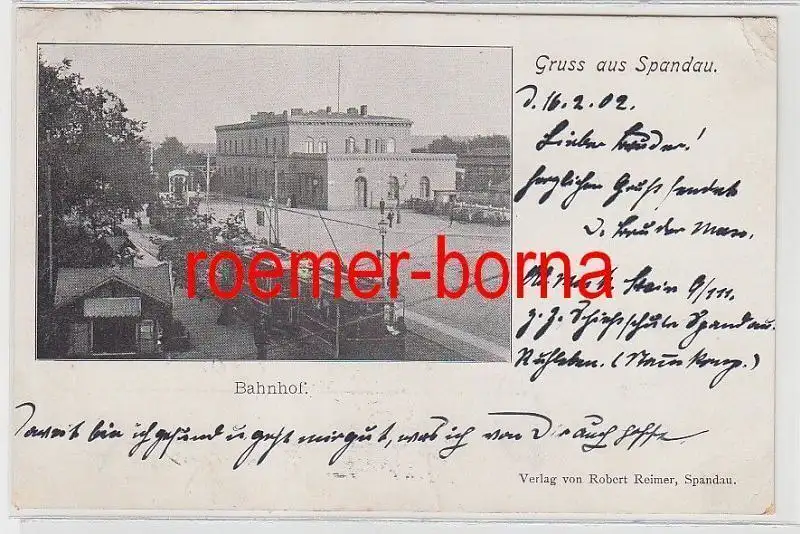 Gruss aus Spandau.
d. 16.2.02.
Lieber Bruder!
herzlichen Gruß sendet
D. Bruder Max.
roemer-borna
Stein 9/111.
z. Z. Schießschule Spandau-
Ruhleben. (Stammkomp.)
Bahnhof.
Soweit bin ich gesund u. geht mir gut, was ich von Dir auch hoffe
Verlag von Robert Reimer, Spandau.